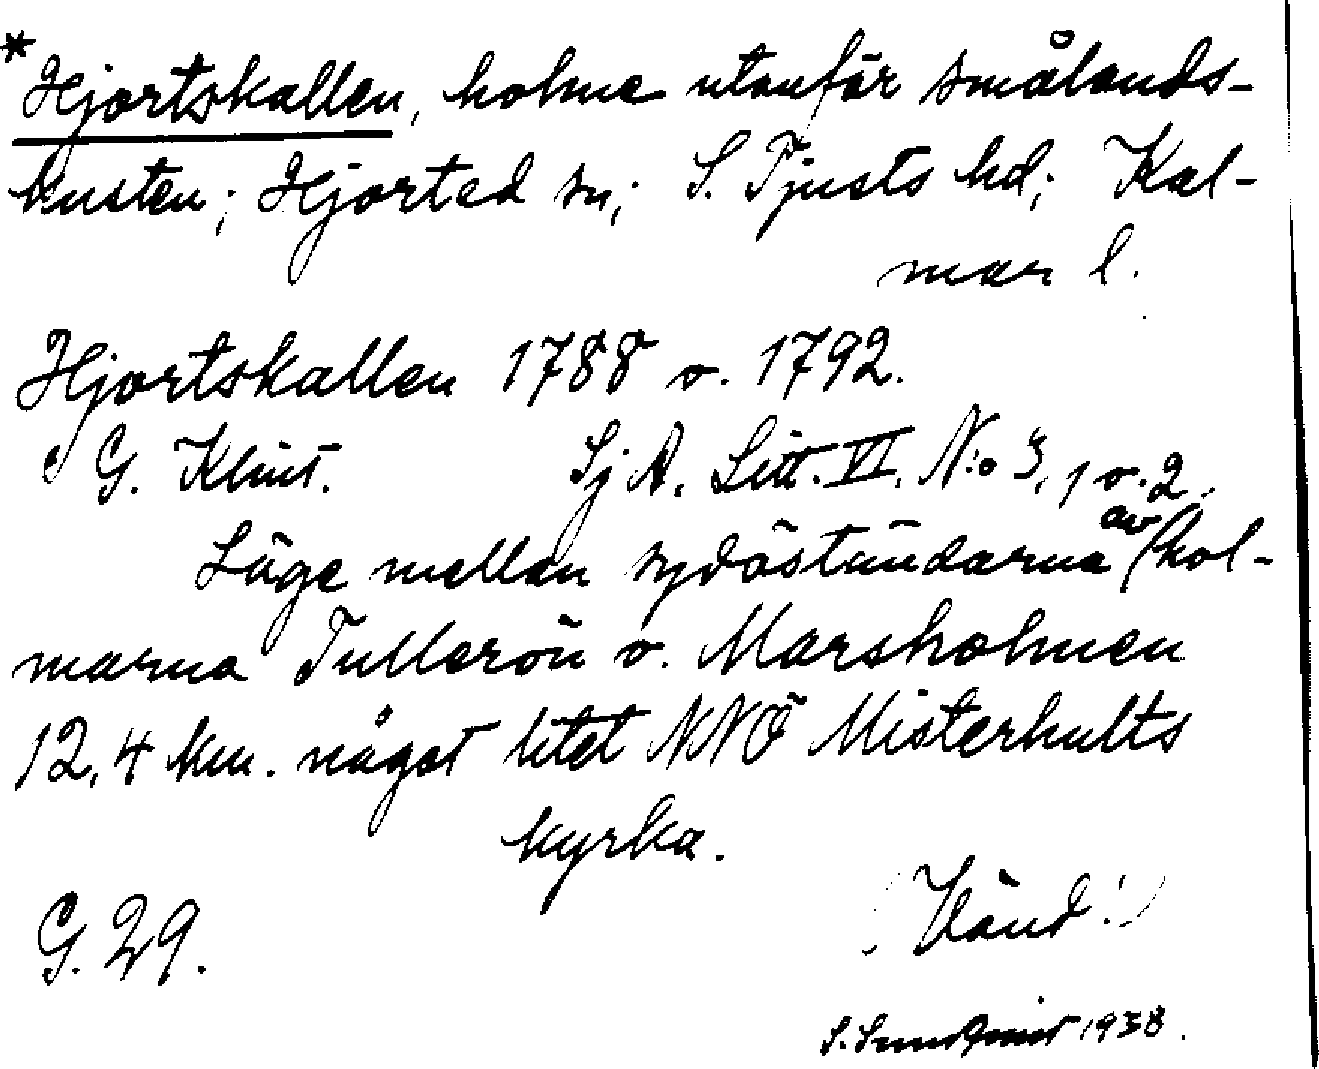 *Hjortskallen, holme utanför smålands-
kusten; Hjorted sn; S. Tjusts hd; Kal-
mar l.
Hjortskallen 1788 o. 1792.
G. Klint. Sj A. Litt. VI. N:o 3, 1 o. 2.
Läge mellan sydöständarna av hol-
marna Tullerön o. Marsholmen
12,4 km. något litet NNÖ Misterhults
kyrka.
G. 29. (Vänd!)
S. Sundqvist 1938.